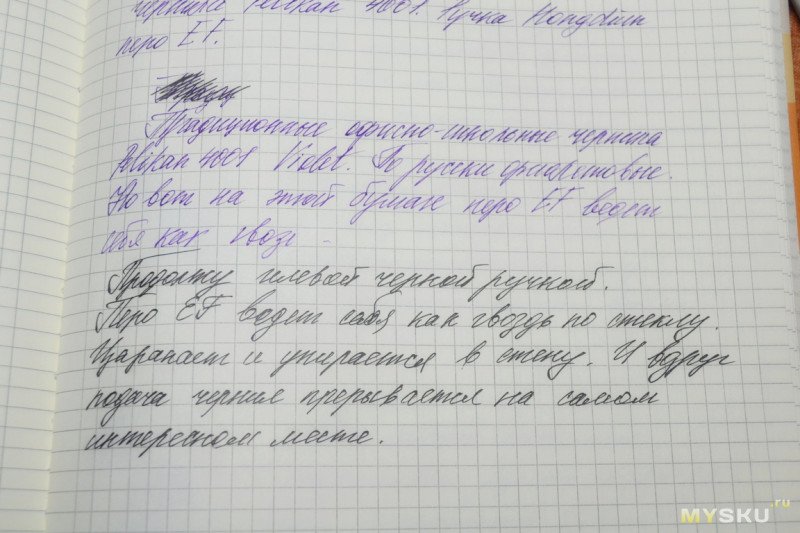 чернила Pelikan 4001. Ручка Hongdian
перо EF.
Традиционные офисно-школьные чернила
Pelikan 4001 Violet. По русски фиолетовые.
Но вот на этой бумаге перо EF ведет
себя как гвоз
Продолжу гелевой черной ручкой.
Перо EF ведет себя как гвоздь по стеклу.
Царапает и упирается в стену. И вдруг
подача чернил прерывается на самом
интересном месте.
MYSKU.ru